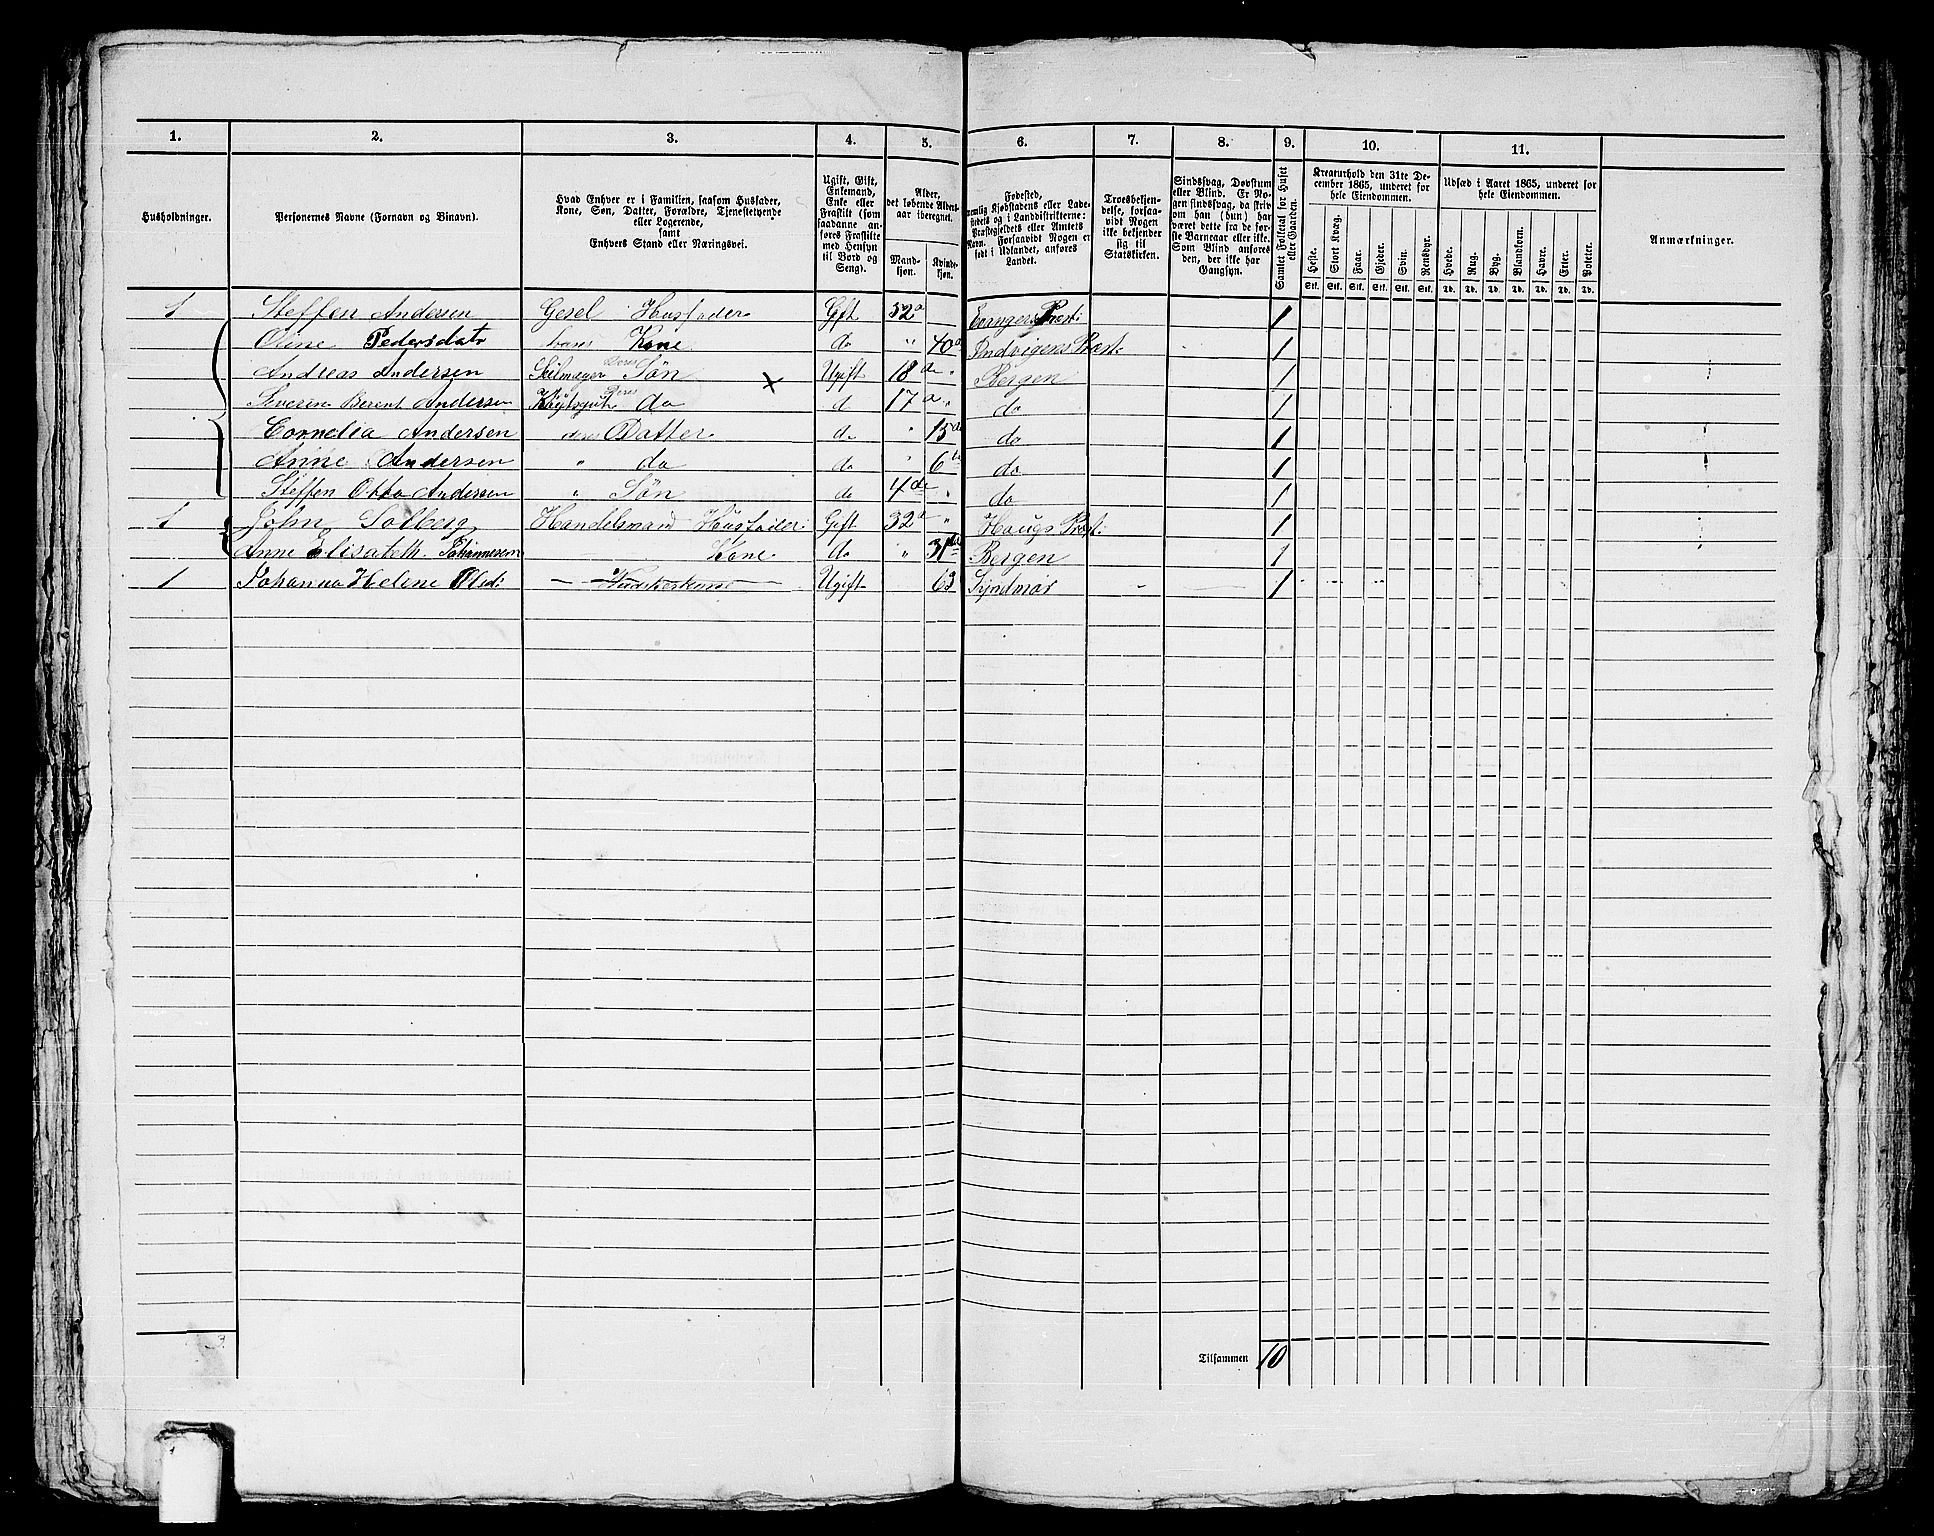 1. 2. 3. 4. 5. 6. 7. 8. 9. 10. 11.
Husholdninger.
Personernes Navne (Fornavn og Binavn).
Hvad Enhver er i Familien, saasom Husfader, Kone, Søn, Datter, Forældre, Tjenestetyende eller Logerende, samt Enhvers Stand eller Næringsvei.
Ugift, Gift, Enkemand, Enke eller Fraskilt (som saadanne anføres Fraskilte med Hensyn til Bord og Seng).
Alder, det løbende Aldersaar iberegnet.
Mandkjøn. Kvindekjøn.
Fødested, nemlig Kjøbstadens eller Ladestedets og i Landdistrikterne: Præstegjeldets eller Amtets Navn. Forsaavidt Nogen er født i Udlandet, anføres Landet.
Troesbekjendelse, forsaavidt Nogen ikke bekjender sig til Statskirken.
Sindssvag, Døvstum eller Blind. Er Nogen sindssvag, da skrives om han (hun) har været dette fra de første Barneaar eller ikke. Som Blind anføres den, der ikke har Gangsyn.
Samlet Folketal for Huset eller Gaarden.
Kreaturhold den 31te December 1865, underet for hele Eiendommen.
Heste. Stort Kvæg. Faar. Gjeder. Svin. Rensdyr.
Stk. Stk. Stk. Stk. Stk. Stk.
Udsæd i Aaret 1865, underet for hele Eiendommen.
Hvede. Rug. Byg. Blandkorn. Havre. Erter. Poteter.
Td. Td. Td. Td. Td. Td. Td.
Anmærkninger.
1 Steffen Andersen Gesel Husfader Gift 52 a Evangers Præst: 1
Oline Pedersdatr hans Kone do " 40 a Indvigens Præst. 1
Andreas Andersen Deres Søn Ugift 18 de " Bergen 1
Severin Berent Andersen Deres do d 17 a " do 1
Cornelia Andersen Datter do " 15 de do 1
Anne Andersen " do do " 6 te do 1
Steffen Otto Andersen " Søn do 4 de " do 1
1 John Solberg Handelsmand Husfader Gift 32 a " Hougs Præst. 1
Anne Elisabeth Johannesen Kone do " 31 te Bergen 1
1 Johanna Helene Ugift 63 Syndmør 1
3
Tilsammen 10